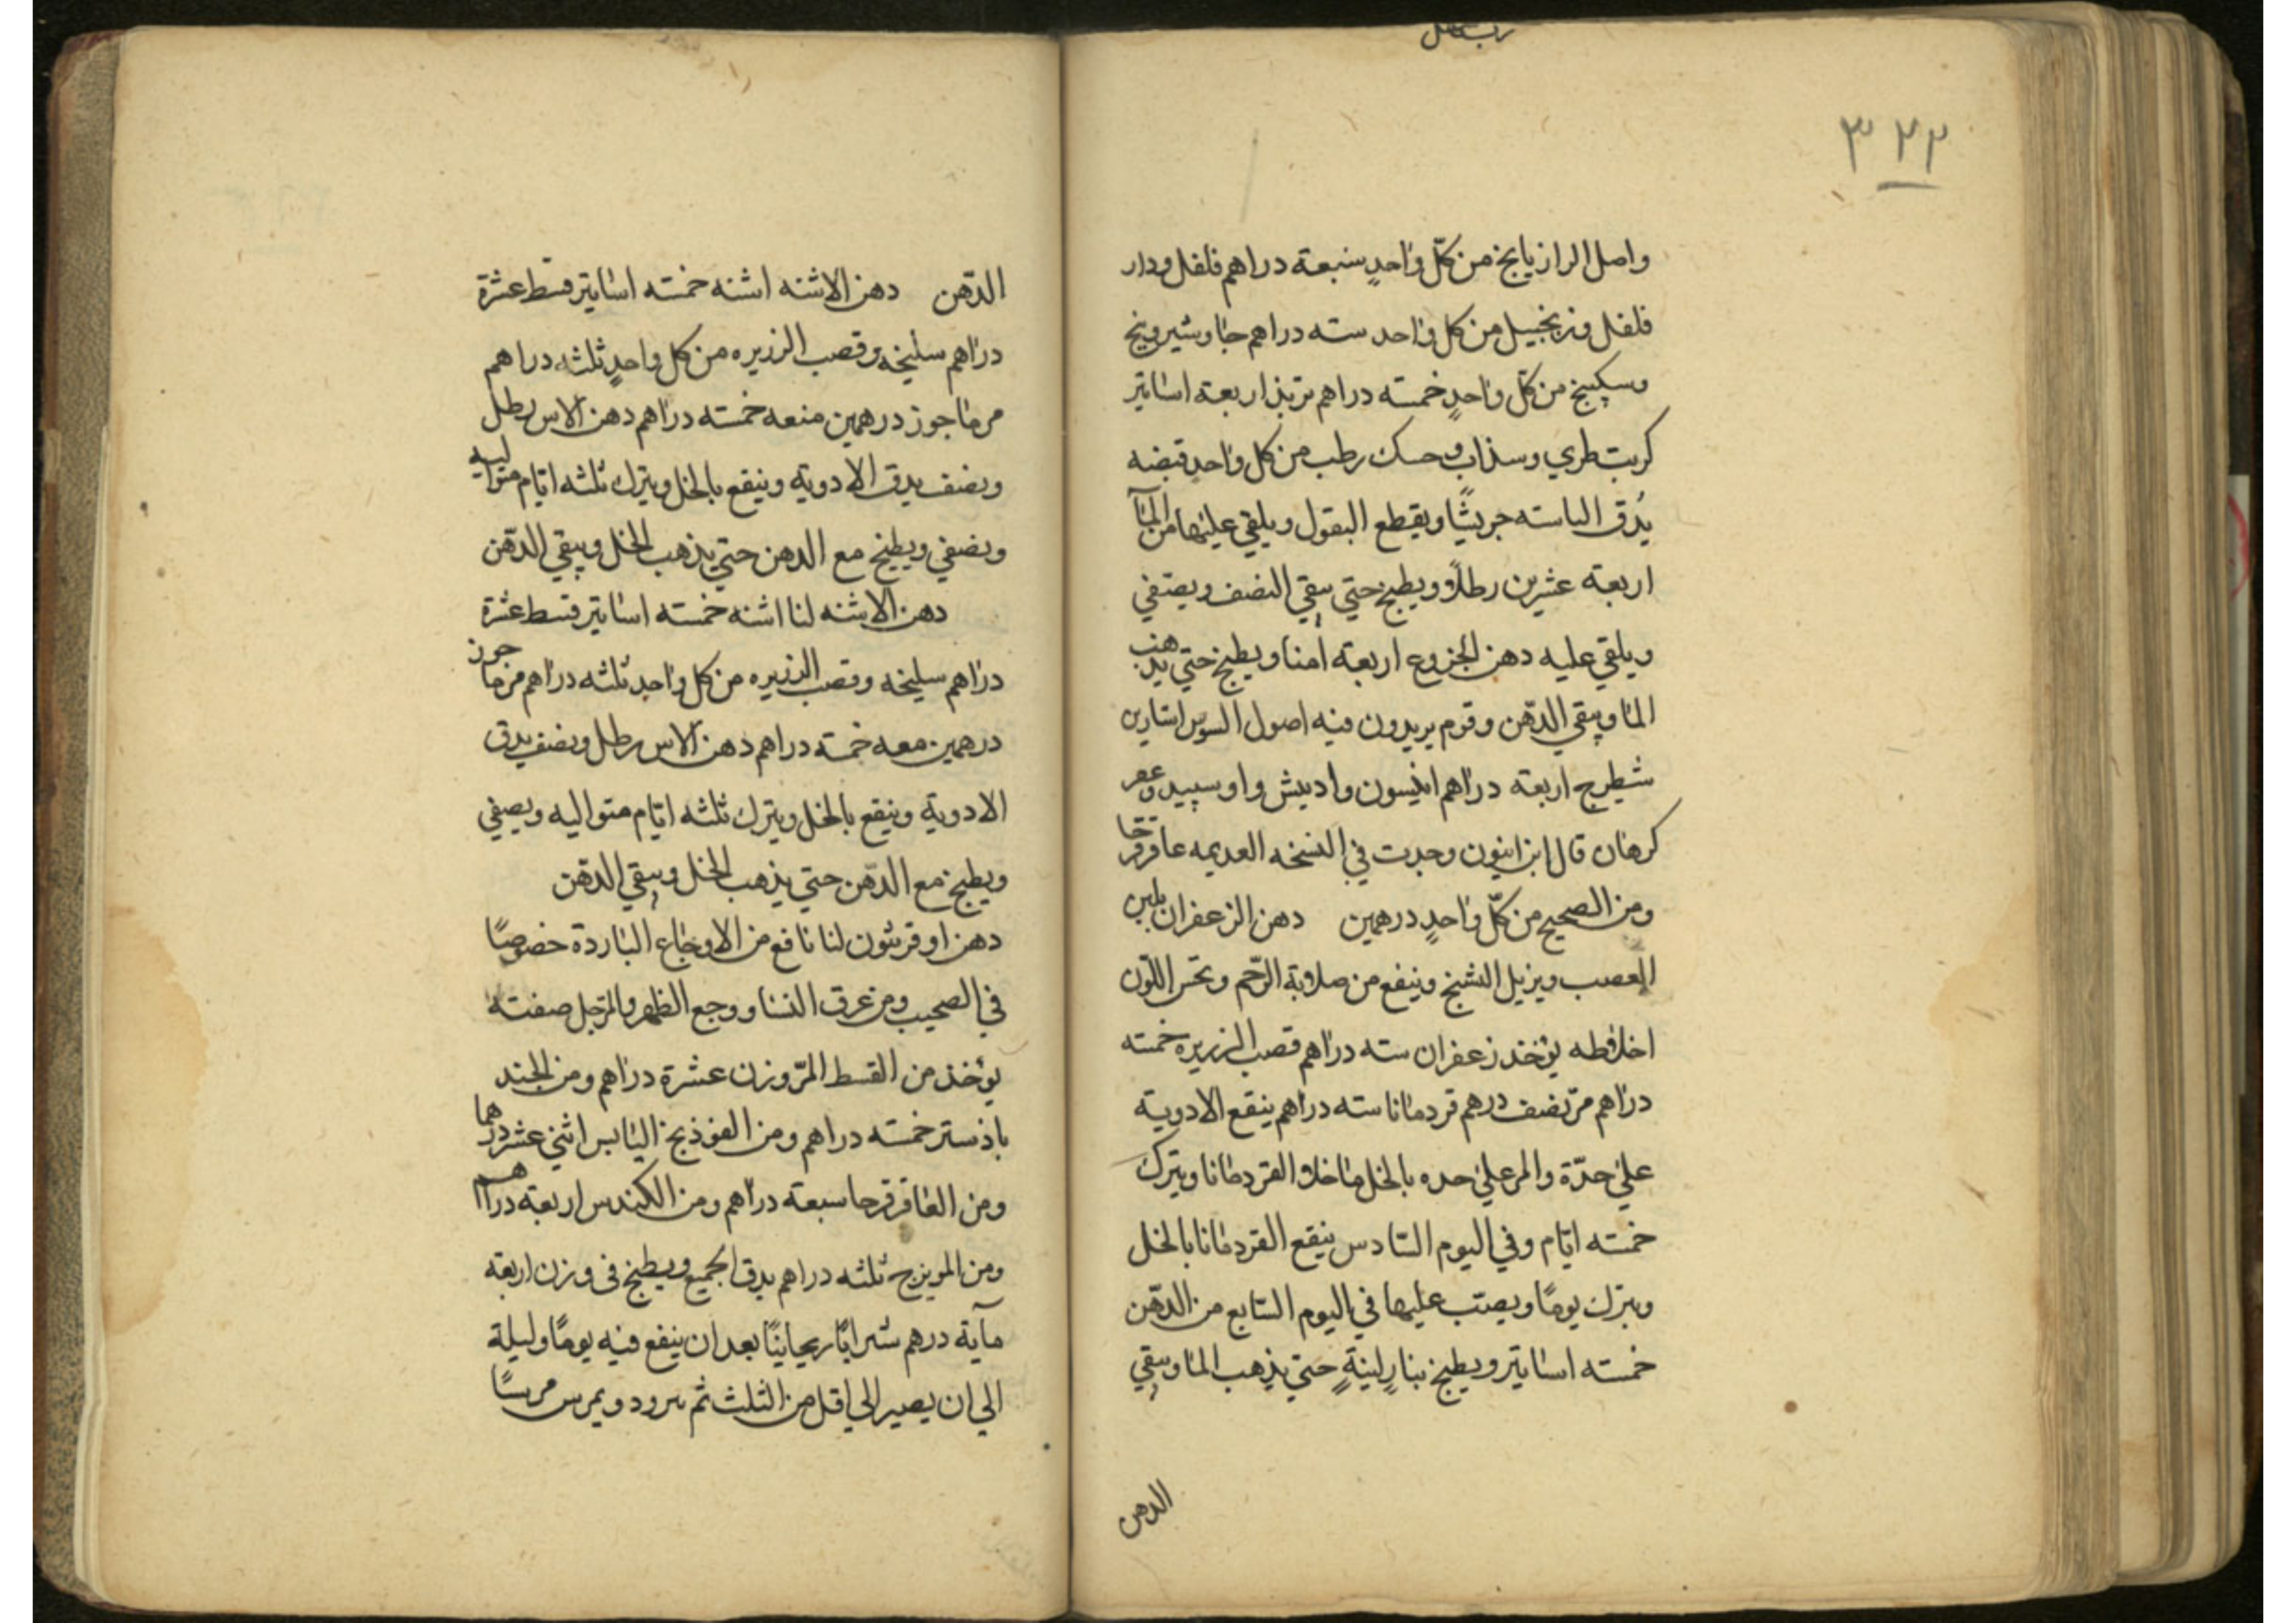 ٣٢٢
واصل الرازيانج من كلّ واحدٍ سبعة دراهم فلفل ودار
فلفل وزنجبيل من كل واحد سته دراهم جاوشير وبنج
وسكبينج من كلّ واحدٍ خمسته دراهم تربذ اربعة اساتير
كربت طري وسذاب وحسك رطب من كل واحد قبضه
يُدق اليابسته جريشًا ويقطع البقول ويلقي عليها من المآ
اربعة عشرين رطلاً ويطبخ حتي يبقي النصف ويصفي
ويلقي عليه دهن الخروع اربعة امنا ويطبخ حتي يذهب
الما ويبقي الدّهن وقوم يريدون فيه اصول السوس استارين
شيطرج اربعة دراهم انيسون وادبيش واوسبيد وعفر
كرهان قال ابن اينون وجدت في النسخه القديمه عاقرقرحا
ومن الصحيح من كلّ واحدٍ درهمين دهن الزعفران يلين
العصب ويزيل التشنج وينفع من صلابة الرّحم ويحسن اللّون
اخلاطه يؤخذ زعفران سته دراهم قصب الزريره خمسته
دراهم مرّ نصف درهم قردمانا سته دراهم ينقع الادوية
علي حدّة والمر علي حده بالخل ما خلا القردمانا ويترك
خمسته ايّام وفي اليوم السّادس ينقع القردمانا بالخل
ويترك يومًا ويصبّ عليها في اليوم السّابع من الدّهن
خمسته اساتير ويطبخ بنارٍ لينةٍ حتي يذهب الما ويبقي
الدهن
الدّهن دهن الاشنه اشنه خمسته اساتير قسط عشرة
دراهم سليخه وقصب الزريره من كل واحدٍ ثلثه دراهم
مرماجوز درهمين منعه خمسته دراهم دهن الاس رطل
ونصف يدق الادوية وينقع بالخل ويترك ثلثه ايّام متواليه
ويصفي ويطبخ مع الدهن حتي يذهب الخل ويبقي الدّهن
دهن الاشنه لنا اشنه خمسته اساتير قسط عشرة
دراهم سليخه وقصب الزريره من كل واحد ثلثه دراهم مرماجوز
درهمين معه خمسته دراهم دهن الاس رطل ونصف يدق
الادوية وينقع بالخل ويترك ثلثه ايّام متواليه ويصفي
ويطبخ مع الدّهن حتي يذهب الخل ويبقي الدّهن
دهن اوفربيون لنا نافع من الاوجاع الباردة خصوصًا
في الصحيب ومن عرق النسا ووجع الظهر والرّجل صفته
يؤخذ من القسط المرّ وزن عشرة دراهم ومن الجند
باذستر خمسته دراهم ومن الفوذنج اليابس اثني عشر درهما
ومن العاقرقرحا سبعته دراهم ومن الكندس اربعة دراهم
ومن المويزج ثلثه دراهم يدق الجميع ويطبخ في وزن اربعة
مآية درهم شرابًا ريحانيًا بعد ان ينقع فيه يومًا وليلة
الي ان يصير الي اقل من الثلث ثم يبرود ويمرس مرسًا